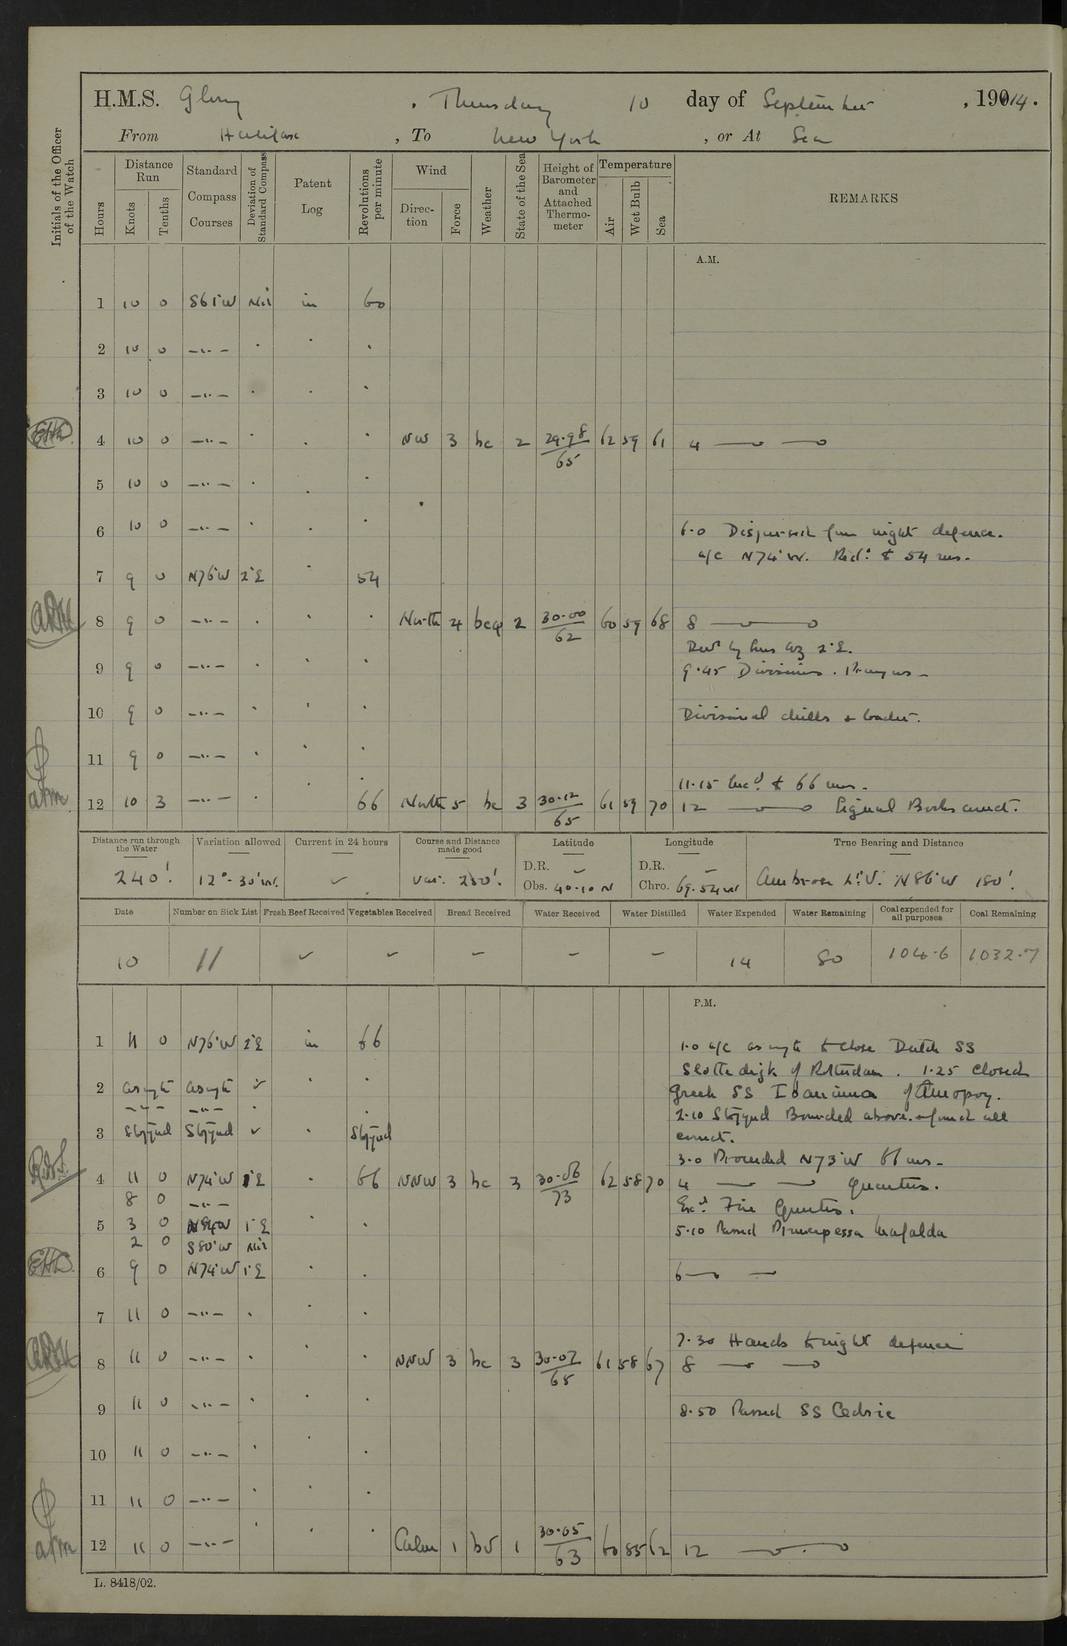 H.M.S. Glory, Thursday 10 day of September, 1914.
From Halifax, To New York, or At Sea
Initials of the Officer of the Watch
Hours
Distance Run
Knots
Tenths
Standard Compass Courses
Deviation of Standard Compass
Patent Log
Revolutions per minute
Wind
Direction
Force
Weather
State of the Sea
Height of Barometer and Attached Thermometer
Temperature
Air
Wet Bulb
Sea
REMARKS
A.M.
1 10 0 S61°W Nil in 60
2 10 0 —"—
3 10 0 —"—
4 10 0 —"— NW 3 bc 2 29.98 65 62 59 61 4
5 10 0 —"—
6 10 0 —"— 6.0 from night defence.
a/c N74°W. Red.d to 54 revs.
7 9 0 N76°W 2°E 54
8 9 0 —"— North 4 bcq 2 30.00 62 60 59 68 8
Devn by Az 2°E.
9 9 0 —"— 9.45 Divisions. Prayers
10 9 0 —"— Divisional drills &
11 9 0 —"—
11.15 Inc.d to 66 revs.
12 10 3 —"— 66 North 5 bc 3 30.12 65 61 59 70 12 Signal Books correct.
Distance run through the Water 240'.
Variation allowed 12°-30'W.
Current in 24 hours
Course and Distance made good Var. 230'.
Latitude
D.R. –
Obs. 40-10 N
Longitude
D.R. –
Chro. 69-54 W
True Bearing and Distance
Ambrose Lt. V. N86°W 180'.
Date
Number on Sick List
Fresh Beef Received
Vegetables Received
Bread Received
Water Received
Water Distilled
Water Expended
Water Remaining
Coal expended for all purposes
Coal Remaining
10 11 – – – – – 14 80 104.6 1032.7
P.M.
1 11 0 N76°W 2°E in 66 1.0 a/c as reqte to close Dutch SS
Sloterdijk of Rotterdam. 1.25 Closed
2 asreqte asreqte Greek SS Ioannina of
—"— —"— 2.10 Stopped Boarded above & found all
3 Stopped Stopped Stopped correct.
3.0 Proceeded N73°W 66 revs
4 11 0 N74°W 1°E 66 NNW 3 bc 3 30.06 73 62 58 70 4 Quarters.
8 0 —"— Exd Fire Quarters.
5 3 0 1°E 5.10 Passed Principessa Mafalda
2 0 S80°W Nil
6 9 0 N74°W 1°E 6
7 11 0 —"—
7.30 Hands to night defence
8 11 0 —"— NNW 3 bc 3 30.02 65 61 58 67 8
9 11 0 —"— 8.50 Passed SS Cedric
10 11 0 —"—
11 11 0 —"—
12 11 0 —"— Calm 1 bv 1 30.05 63 60 55 62 12
L. 8418/02.